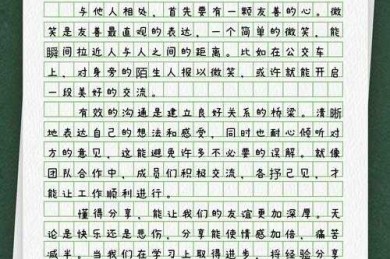 与他人相处，首先要有一颗友善的心。微
笑是友善最直观的表达，一个简单的微笑，能
瞬间拉近人与人之间的距离。比如在公交车
上，对身旁的陌生人报以微笑，或许就能开启
一段美好的交流。
有效的沟通是建立良好关系的桥梁。清晰
地表达自己的想法和感受，同时也耐心倾听对
方的意见，这能避免许多不必要的误解。就像
团队合作中，成员们积极交流，各抒己见，才
能让工作顺利进行。
懂得分享，能让我们的友谊更加深厚。无
论是快乐还是悲伤，分享能使情感加倍，痛苦
减半。当我们在学习上取得进步，将经验分享